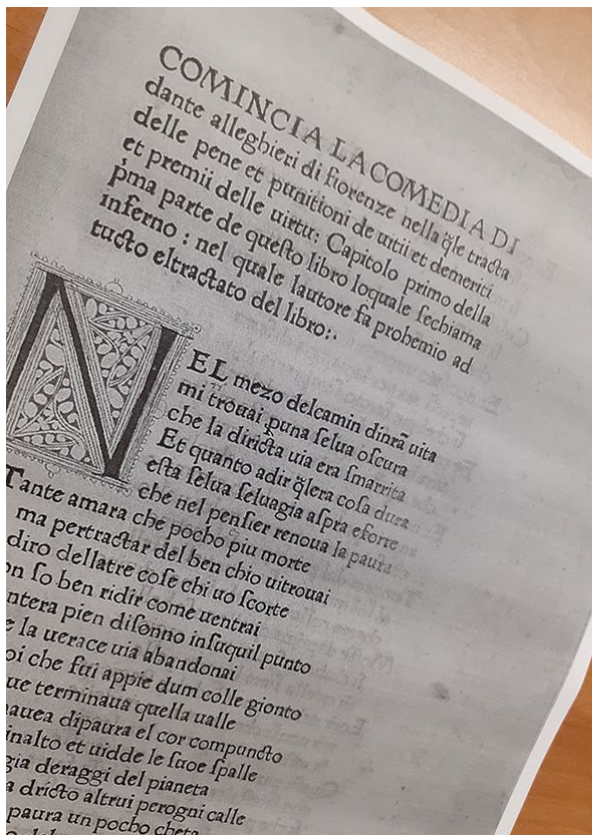 COMINCIA LA COMEDIA DI
dante alleghieri di fiorenze nella q̃le tracta
delle pene et punitioni de uitii et demeriti
et premii delle uirtu: Capitolo primo della
p̃ma parte de queſto libro loquale ſechiama
inferno : nel quale lautore fa prohemio ad
tucto eltractato del libro:.
NEL mezo delcamin dinr̃a uita
mi trouai p̱una ſelua oſcura
che la diricta uia era ſmarrita
Et quanto adir q̃lera coſa dura
eſta ſelua ſeluagia aſpra eforte
che nel penſier renoua la paura
Tante amara che pocho piu morte
ma pertractar del ben chio uitrouai
diro dellatre coſe chi uo ſcorte
ſo ben ridir come uentrai
pien diſonno inſuquil punto
la uerace uia abandonai
che fui appie dum colle gionto
terminaua quella ualle
dipaura el cor compuncto
et uidde le ſuoe ſpalle
deraggi del pianeta
dricto altrui perogni calle
paura un pocho cheta